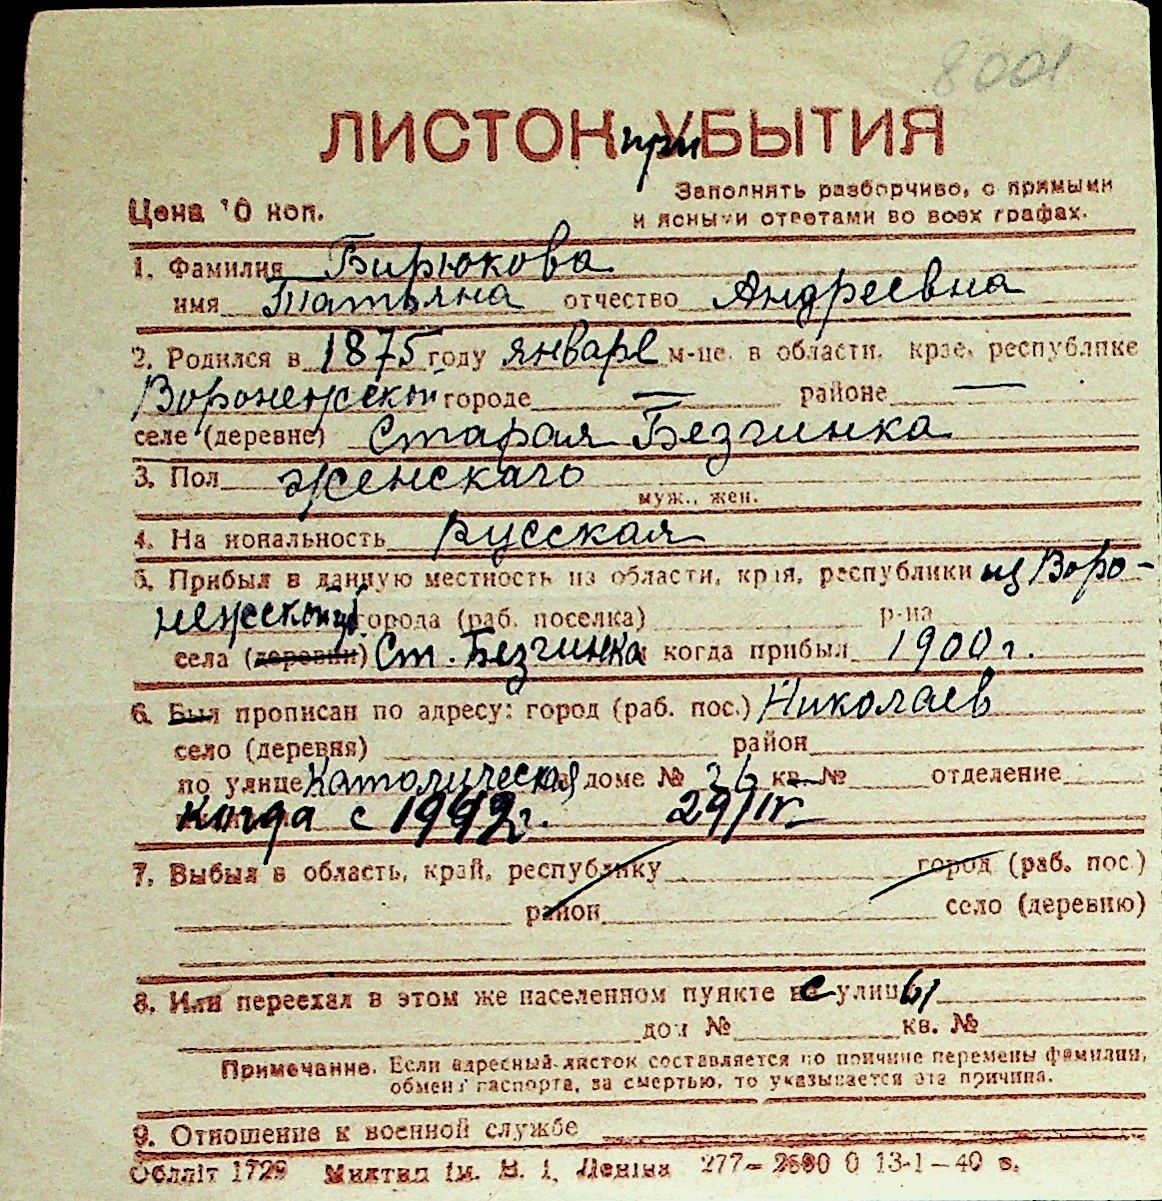 8001
ЛИСТОК при УБЫТИЯ
Заполнять разборчиво, с прямыми
Цена 10 коп. и ясными ответами во всех графах.
1. Фамилия Бирюкова
имя Татьяна отчество Андреевна
2. Родился в 1875 году январе м-це. в области, крае, республике
Воронежской городе — районе —
селе (деревне) Старая Безгинка
3. Пол женскаго
муж., жен.
4. Национальность русская
5. Прибыл в данную местность из области, края, республики из Воро-
нежской города (раб. поселка) р-на
села (деревни) Ст. Безгинка и когда прибыл 1900 г.
6. Был прописан по адресу: город (раб. пос.) Николаев
село (деревня) район
по улице Католическая доме № 36 кв. № отделение
когда с 1942 г. 29/IV
7. Выбыл в область, край, республику город (раб. пос.)
район село (деревню)
8. Или переехал в этом же населенном пункте с улицы
дом № кв. №
Примечание. Если адресный листок составляется по причине перемены фамилии,
обмена паспорта, за смертью, то указывается эта причина.
9. Отношение к военной службе
Обллiт 1729 Миктип iм. В. I. Ленiна 277— 2690 0 13-1—40 в.